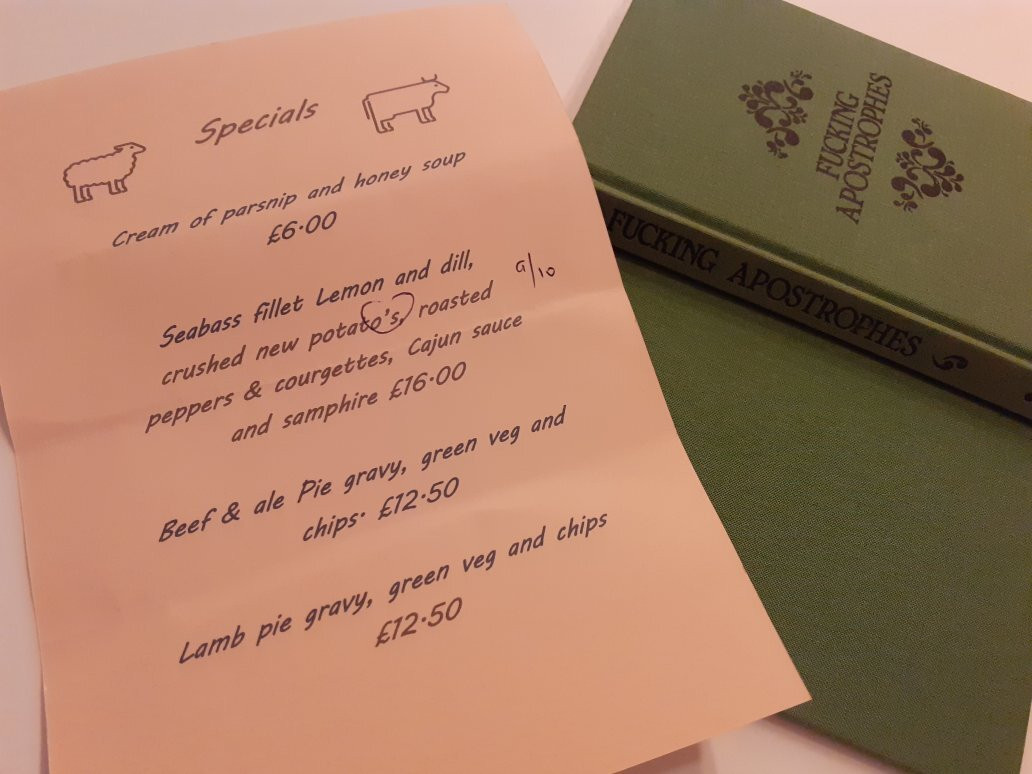 Specials
Cream of parsnip and honey soup
£6·00
Seabass fillet Lemon and dill,
crushed new potato's, roasted
peppers & courgettes, Cajun sauce
and samphire £16·00
Beef & ale Pie gravy, green veg and
chips· £12·50
Lamb pie gravy, green veg and chips
£12·50
9/10
FUCKING
APOSTROPHES
FUCKING APOSTROPHES